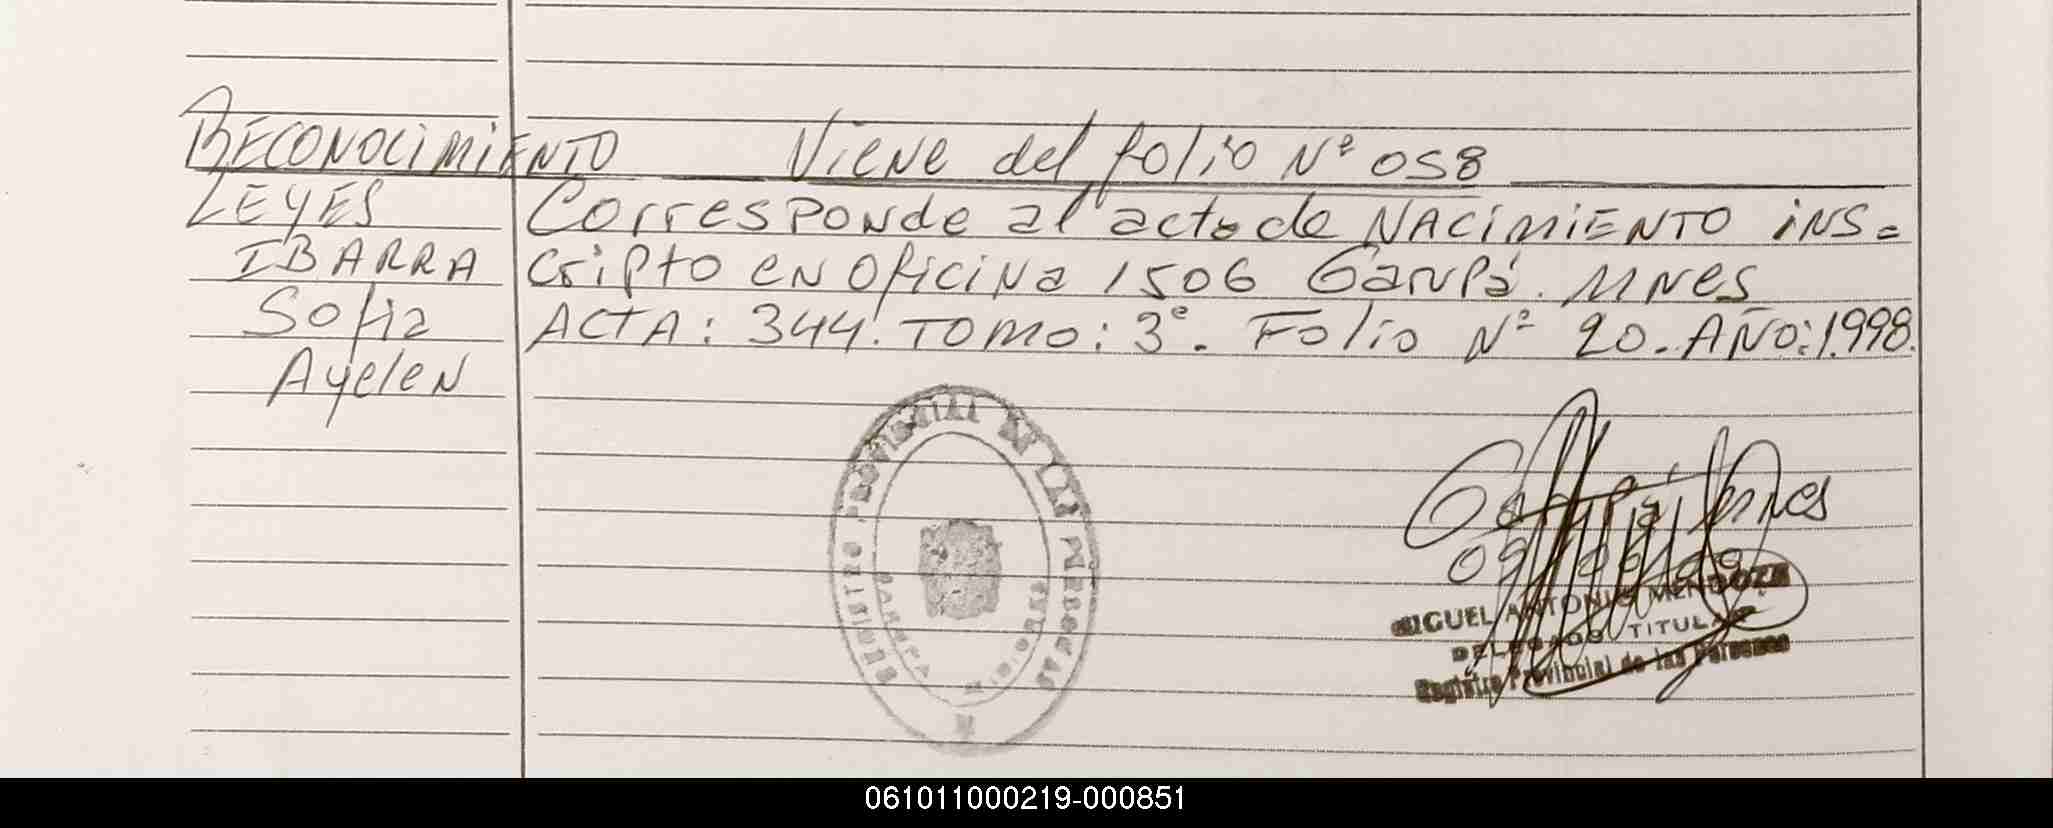 RECONOCIMIENTO Viene del folio Nº 058
LEYES Corresponde al acta de NACIMIENTO iNS=
IBARRA cripto en Oficina 1506 Garupá. MNes
Sofia ACTA: 344. TOMO: 3º. Folio Nº 20. AÑO: 1.998.
Ayelen
REGISTRO PROVINCIAL DE LAS PERSONAS
Garupá Mnes
MIGUEL ANTONIO MENDOZA
DELEGADO TITULAR
Registro Provincial de las Personas
061011000219-000851